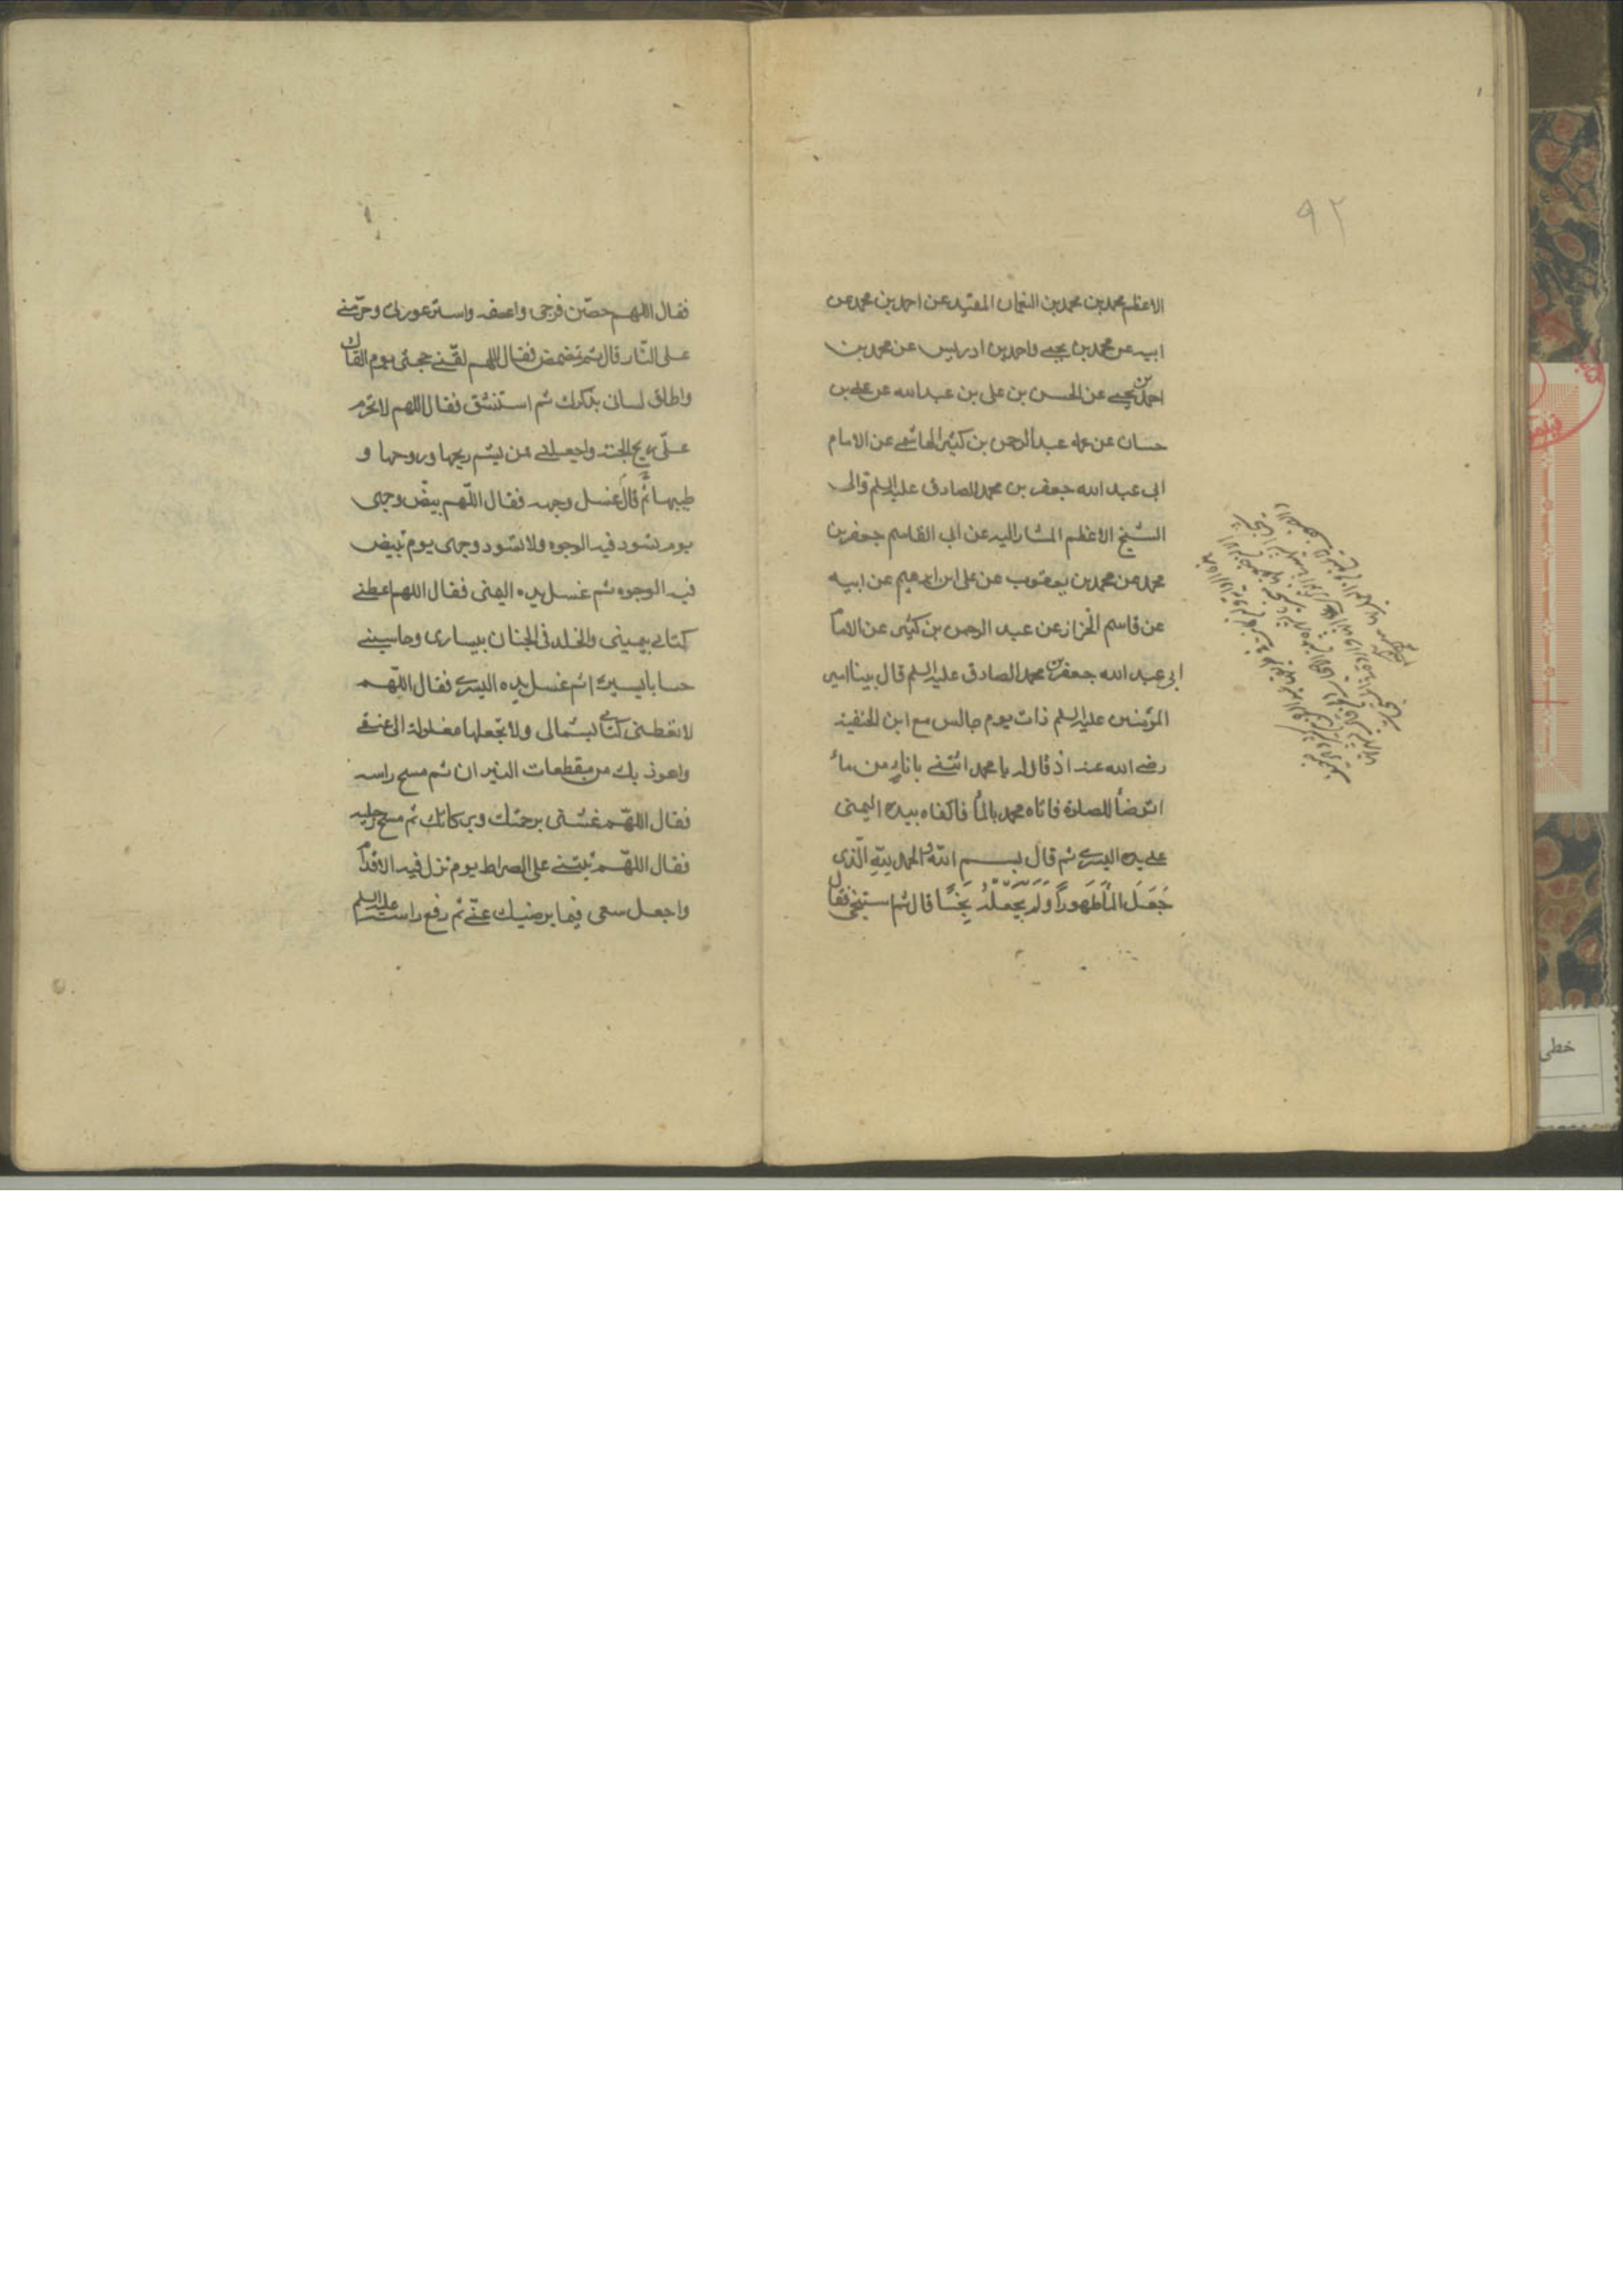 ٩٢
الاعظم محمد بن محمد بن النعمان المفيد عن احمد بن محمد عن
ابيه عن محمد بن يحيى واحمد بن ادريس عن محمد بن
احمد بن يحيى عن الحسن بن على بن عبد الله عن على بن
حسان عن عمه عبد الرحمن بن كثير الهاشمى عن الامام
ابى عبد الله جعفر بن محمد الصادق عليه السلم والى
الشيخ الاعظم المشار اليه عن ابى القاسم جعفر بن
محمد عن محمد بن يعقوب عن على ابن ابرهيم عن ابيه
عن قاسم الخزاز عن عبد الرحمن بن كثير عن الامام
ابى عبد الله جعفر بن محمد الصادق عليه السلم قال بينا امير
المؤمنين عليه السلم ذات يوم جالس مع ابن الحنفية
رضى الله عنه اذ قال له يا محمد ائتنى باناء من ماء
اتوضأ للصلوة فاتاه محمد بالماء فاكفاه بيده اليمنى
على يده اليسرى ثم قال بسم الله والحمد لله الّذى
جَعَلَ الماءَ طَهوراً وَلَم يَجعَلْهُ نَجِسًا قال ثم استنجى فقال
فقال اللهم حصّن فرجى واعفه واستر عورتى وحرّمنى
على النّار قال ثم تمضمض فقال اللهم لقّنى حجتى يوم القاك
واطلق لسانى بذكرك ثم استنشق فقال اللهم لا تحرم
علىّ ريح الجنة واجعلنى ممن يشم ريحها وروحها و
طيبها قال ثم غسل وجهه فقال اللّهم بيّض وجهى
يوم تسود فيه الوجوه ولا تسود وجهى يوم تبيض
فيه الوجوه ثم غسل يده اليمنى فقال اللهم اعطنى
كتابى بيمينى والخلد فى الجنان بيسارى وحاسبنى
حسابا يسيرا ثم غسل يده اليسرى فقال اللّهم
لا تعطنى كتابى بشمالى ولا تجعلها مغلولة الى عنقى
واعوذ بك من مقطعات النيران ثم مسح راسه
فقال اللّهم غشّنى برحمتك وبركاتك ثم مسح رجليه
فقال اللّهم ثبّتنى على الصراط يوم تزل فيه الاقدام
واجعل سعيى فيما يرضيك عنّى ثم رفع راسه عليه السلم
خطى